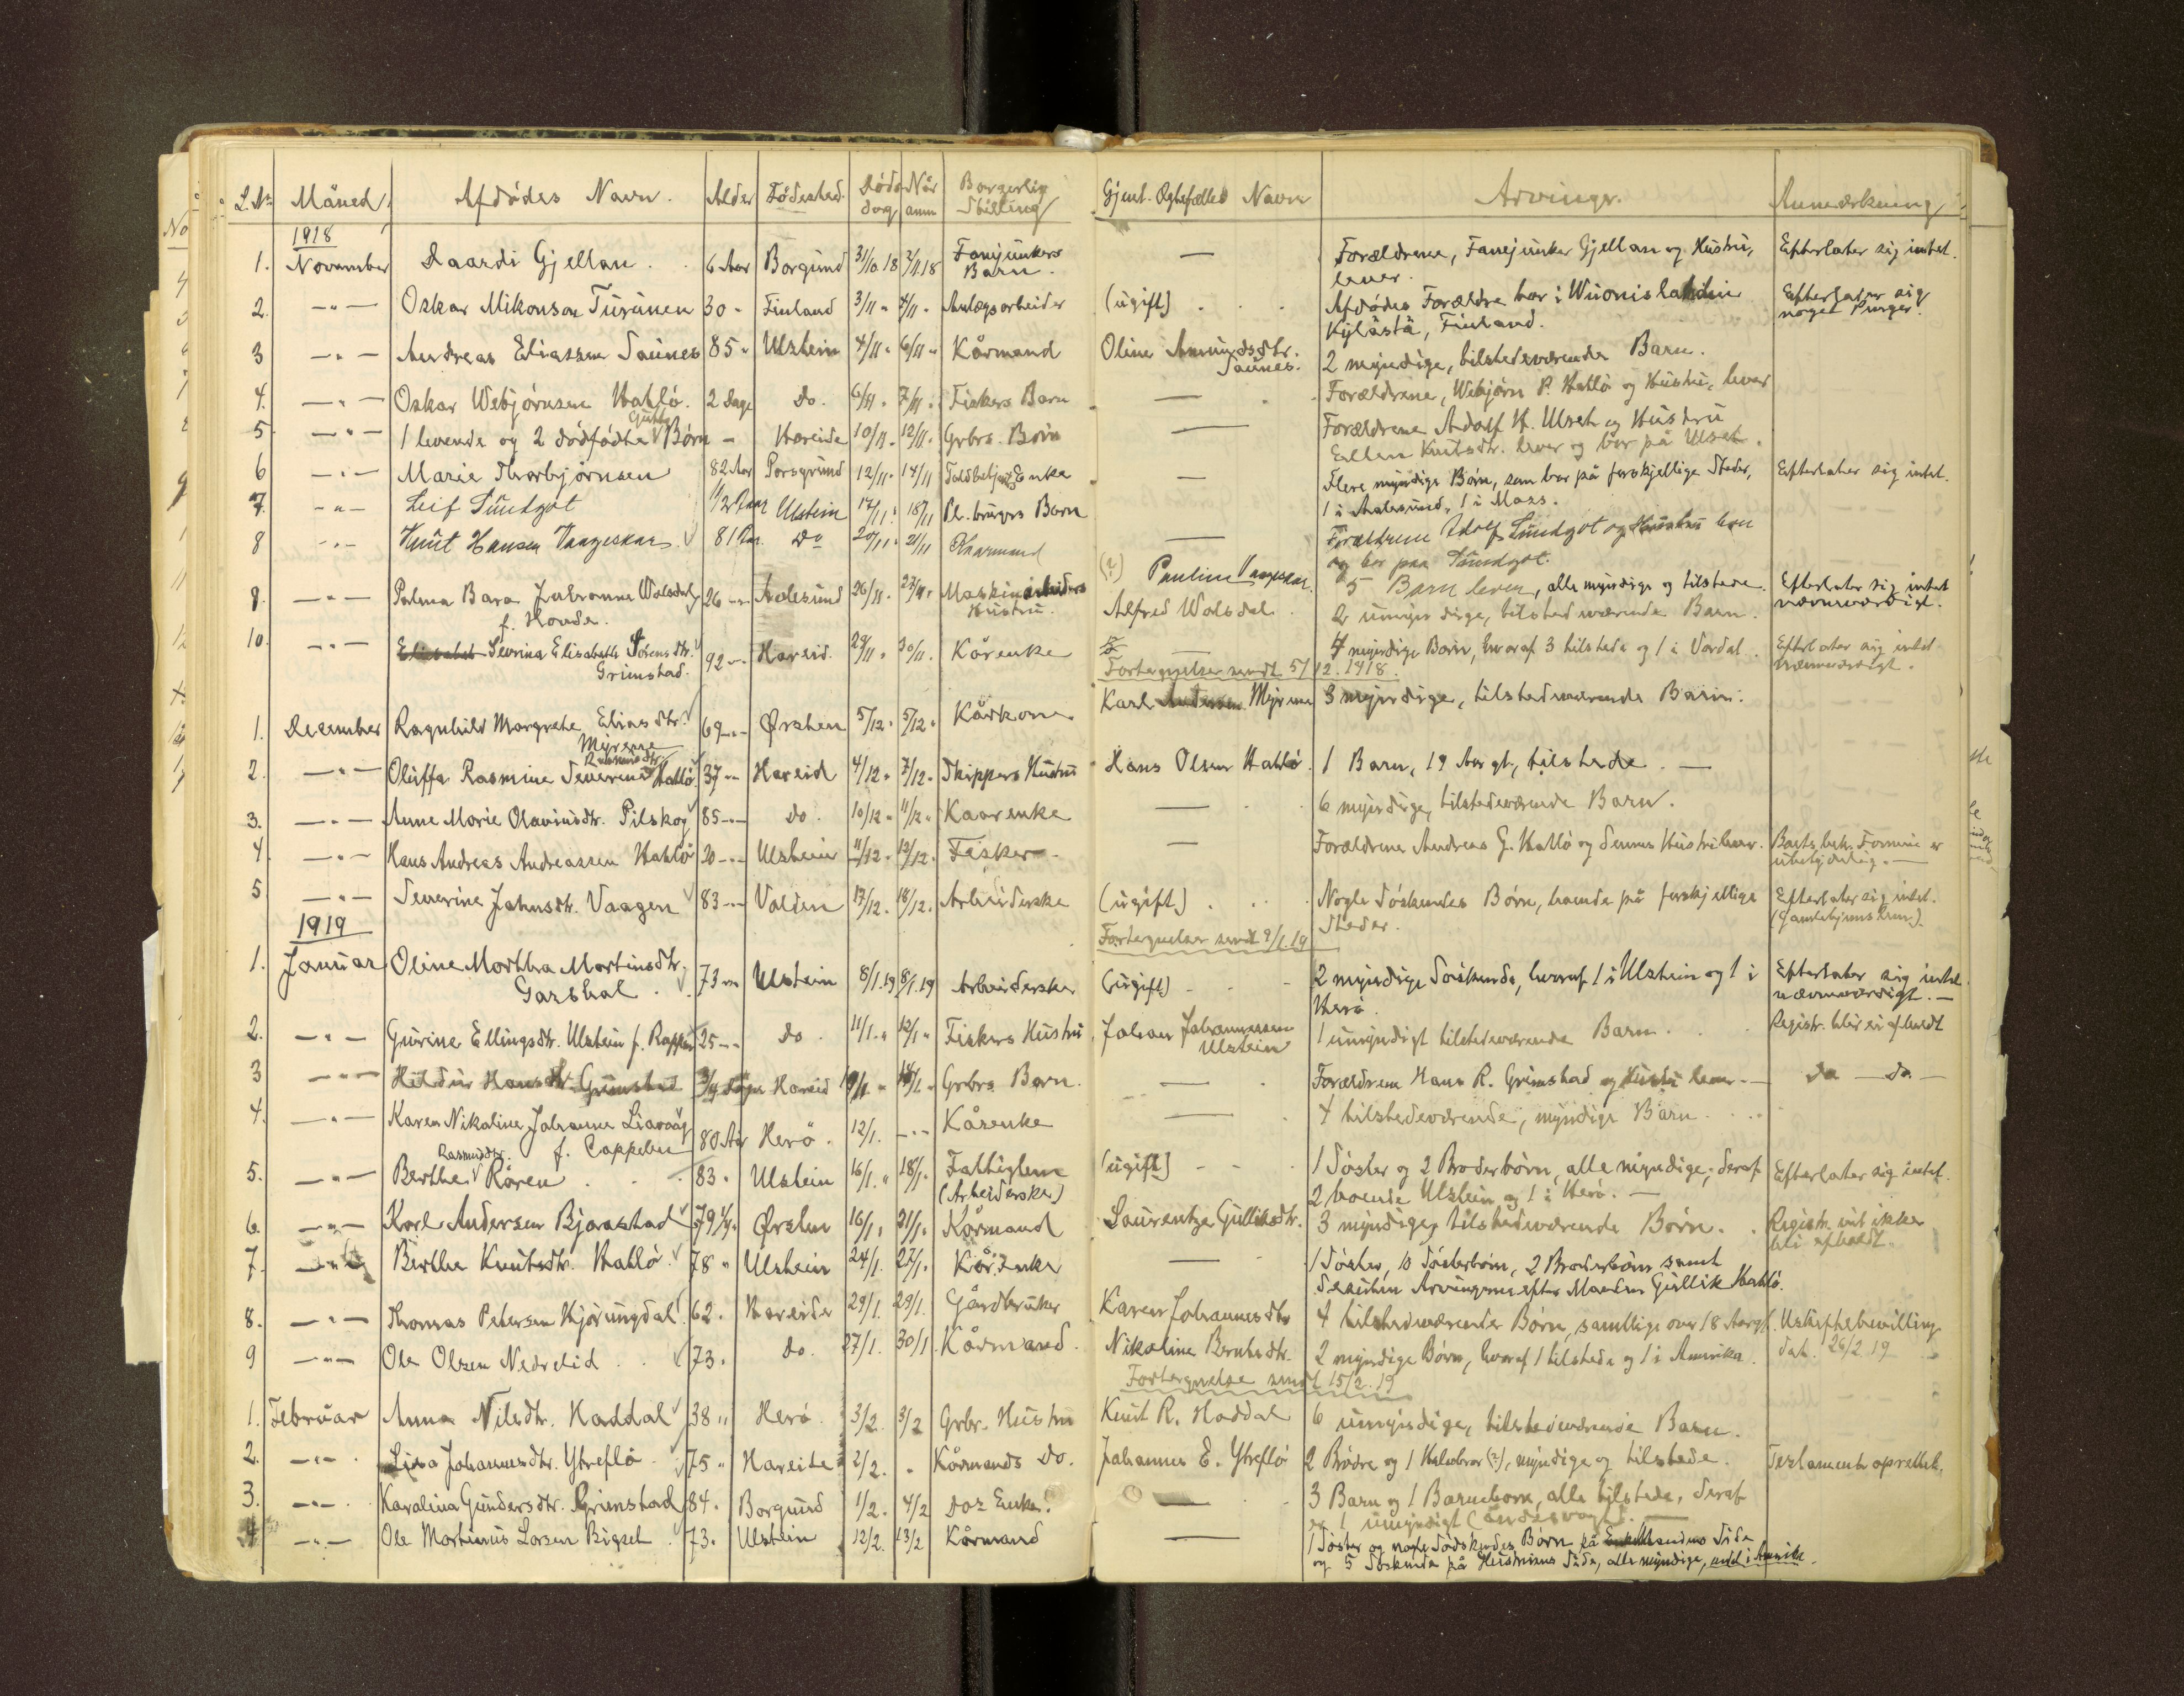 L.No Måned, Afdödes Navn. Alder Födested. Döds dag Når anm Borgerlig Stilling Gjenl. Ægtefælles Navn Arvinger. Anmærkning
1918
1. November Daardi Gjellan. 6 Aar Borgund 31/10.18 2/11.18 Fanejunkers Barn. — Forældrene, Fanejunker Gjellan og Hustru, lever. Efterlater sig intet.
2. —"— Oskar Mikonson Turunen 30 " Finland 3/11 " 4/11 " Anlægsarbeider (ugift) Afdödes Forældre bor i Kylästä, Finland. Efterlater sig noget Penger.
3 —"— Andreas Eliassen Saunes 85 " Ulstein 4/11 " 6/11 " Kårmand Oline Amundsdtr. Saunes. 2 myndige, tilstedeværende Barn.
4. —"— Oskar Webjörnsen Hatlö. 2 Dage Do. 6/11 " 7/11 " Fiskers Barn — Forældrene, Webjörn P. Hatlö og Hustru, lever
5 —"— 1 levende og 2 dödfödte Gutte Börn — Hareide 10/11 " 12/11 " Grbrs. Börn — Forældrene Adolf H. Ulset og Hustru Ellen Knutsdtr. lever og bor på Ulset.
6 —"— Marie Thorbjörnsen 82 Aar Porsgrund 12/11 " 14/11 Enke — Flere myndige Börn, som bor på forskjellige Steder, 1 i Aalesund, 1 i Moss. Efterlater sig intet.
7. —"— Leif Sundgot 1/2 Aar Ulstein 17/11 " 18/11 Barn — Forældrene Adolf Sundgot og Hustru lever og bor paa Sundgot.
8 —"— Knut Hansen Vaageskar 81 Aar Do 20/11 " 21/11 Kaarmand (?) Pauline Vaageskar 5 Barn lever, alle myndige og tilstede. Efterlater sig intet nævneværdigt.
8. —"— Palma Bara Johanne Walsdal f. Hovde. 26 —"— Aalesund 26/11 " 27/11 " Maskinarbeiders Hustru. Alfred Walsdal. 2 umyndige, tilstedeværende Barn.
10. —"— Sevrina Elisabeth Grimstad. 92 —"— Hareid 29/11 " 30/11. Kårenke — 4 myndige Barn, hvoraf 3 tilstede og 1 i Vordal. Efterlater sig intet nævneværdigt.
Fortegnelse sendt 5/12.1918.
1. December Ragnhild Margrethe Eliasdtr. Myrene 69 —"— Örsten 5/12 " 5/12 " Kårkone Karl Andersen Myrene 3 myndige, tilstedeværende Barn.
2. —"— Oluffa Rasmine Severine Rasmusdtr. Hatlö 37 —"— Hareid 4/12 " 7/12 " Skippers Hustru Hans Olsen Hatlö. 1 Barn, 19 Aar gt., tilstede. —
3. —"— Anne Marie Olavusdtr. Pilskog 85 —"— Do. 10/12 " 11/12 " Kaarenke — 6 myndige, tilstedeværende Barn.
4. —"— Hans Andreas Andreassen Hatlö 20 —"— Ulstein 11/12 " 12/12 " Fisker — Forældrene Andreas G. Hatlö og dennes Hustru lever. Formue er ubetydelig. —
5. —"— Severine Johnsdtr. Vaagen 83 —"— Volden 17/12. 18/12. Arbeiderske (ugift) Nogle Söskendes Börn, boende på forskjellige Steder. Efterlater sig intet. (Gamlehjems lem).
Fortegnelse sendt 9/1.19
1919
1. Januar Oline Marthea Martinsdtr. Garshol. 73 —"— Ulstein 8/1.19 9/1.19 Arbeiderske (ugift) 2 myndige Söskende, hvoraf 1 i Ulstein og 1 i Herö. Efterlater sig intet nævneværdigt. —
2. —"— Gurine Ellingsdtr. Ulstein f. 25 —"— Do. 11/1. " 12/1 " Fiskers Hustru Johan Johannessen Ulstein 1 umyndigt tilstedeværende Barn. Registr. blir ei afholdt
3 —"— Hildur Hansdtr. Grimstad Hareid Grbrs Barn. — Forældrene Hans R. Grimstad og Hustru lever. — do — do —
4. —"— Karen Nikoline Johanne Liavaag f. Cappelen 80 Aar Herö. 12/1. —"— Kårenke — 4 tilstedeværende, myndige Barn.
5. —"— Berthe Rasmusdtr. Rören 83. Ulstein 16/1. " 18/1. Fattiglem (Arbeiderske) (ugift) 1 Söster og 2 Broderbörn, alle myndige, deraf 2 boende Ulstein og 1 i Herö. — Efterlater sig intet.
6. —"— Karl Andersen Bjaastad 79 1/4. Örsten 16/1 " 21/1. Kårmand Laurentze Gulliksdtr. 3 myndige, tilstedeværende Börn. Registr. vil ikke bli afholdt.
7. —"— Berthe Knutsdtr. Hatlö. 78 " Ulstein 24/1. 27/1. Kår.enke — 1 Söster, 10 Sösterbörn, 2 Broderbörn samt desuten Arvingerne efter Manden Gullik Hatlö.
8. —"— Thomas Petersen Hjörungdal 62. Hareide 29/1. 29/1. Gårdbruker Karen Johannesdtr 4 tilstedeværende Börn, samtlige over 18 Aar gl. Uskiftebevilling dat. 26/2 19
9 —"— Ole Olsen Nedrelid 73. Do. 27/1. 30/1. Kårmand. Nikoline Berntsdtr. 2 myndige Börn, hvoraf 1 tilstede og 1 i Amerika.
Fortegnelse sendt 15/2.19
1. Februar Anna Nilsdtr. Haddal 38 " Herö. 3/2. 3/2 Grbr. Hustru Knut R. Haddal 6 umyndige, tilstedeværende Barn.
2. —"— Lisa Johannesdtr. Ytreflö 75 " Hareide 2/2. " Kårmands Do. Johannes E. Ytreflö 2 Brödre og 1 Halvbror (?), myndige og tilstede. Testamente oprettet.
3. —"— Karolina Gundersdtr. Grimstad 84. Borgund 1/2. 4/2 Do: Enke. — 3 Barn og 1 Barnebarn, alle tilstede, deraf er 1 umyndigt (åndssvagt). —
4 —"— Ole Martinus Larsen Bigset 73. Ulstein 12/2. 13/2 Kårmand — 1 Söster og nogle Södskendes Börn på Mandens Side og 5 Söskende på Hustruens Side, alle myndige,